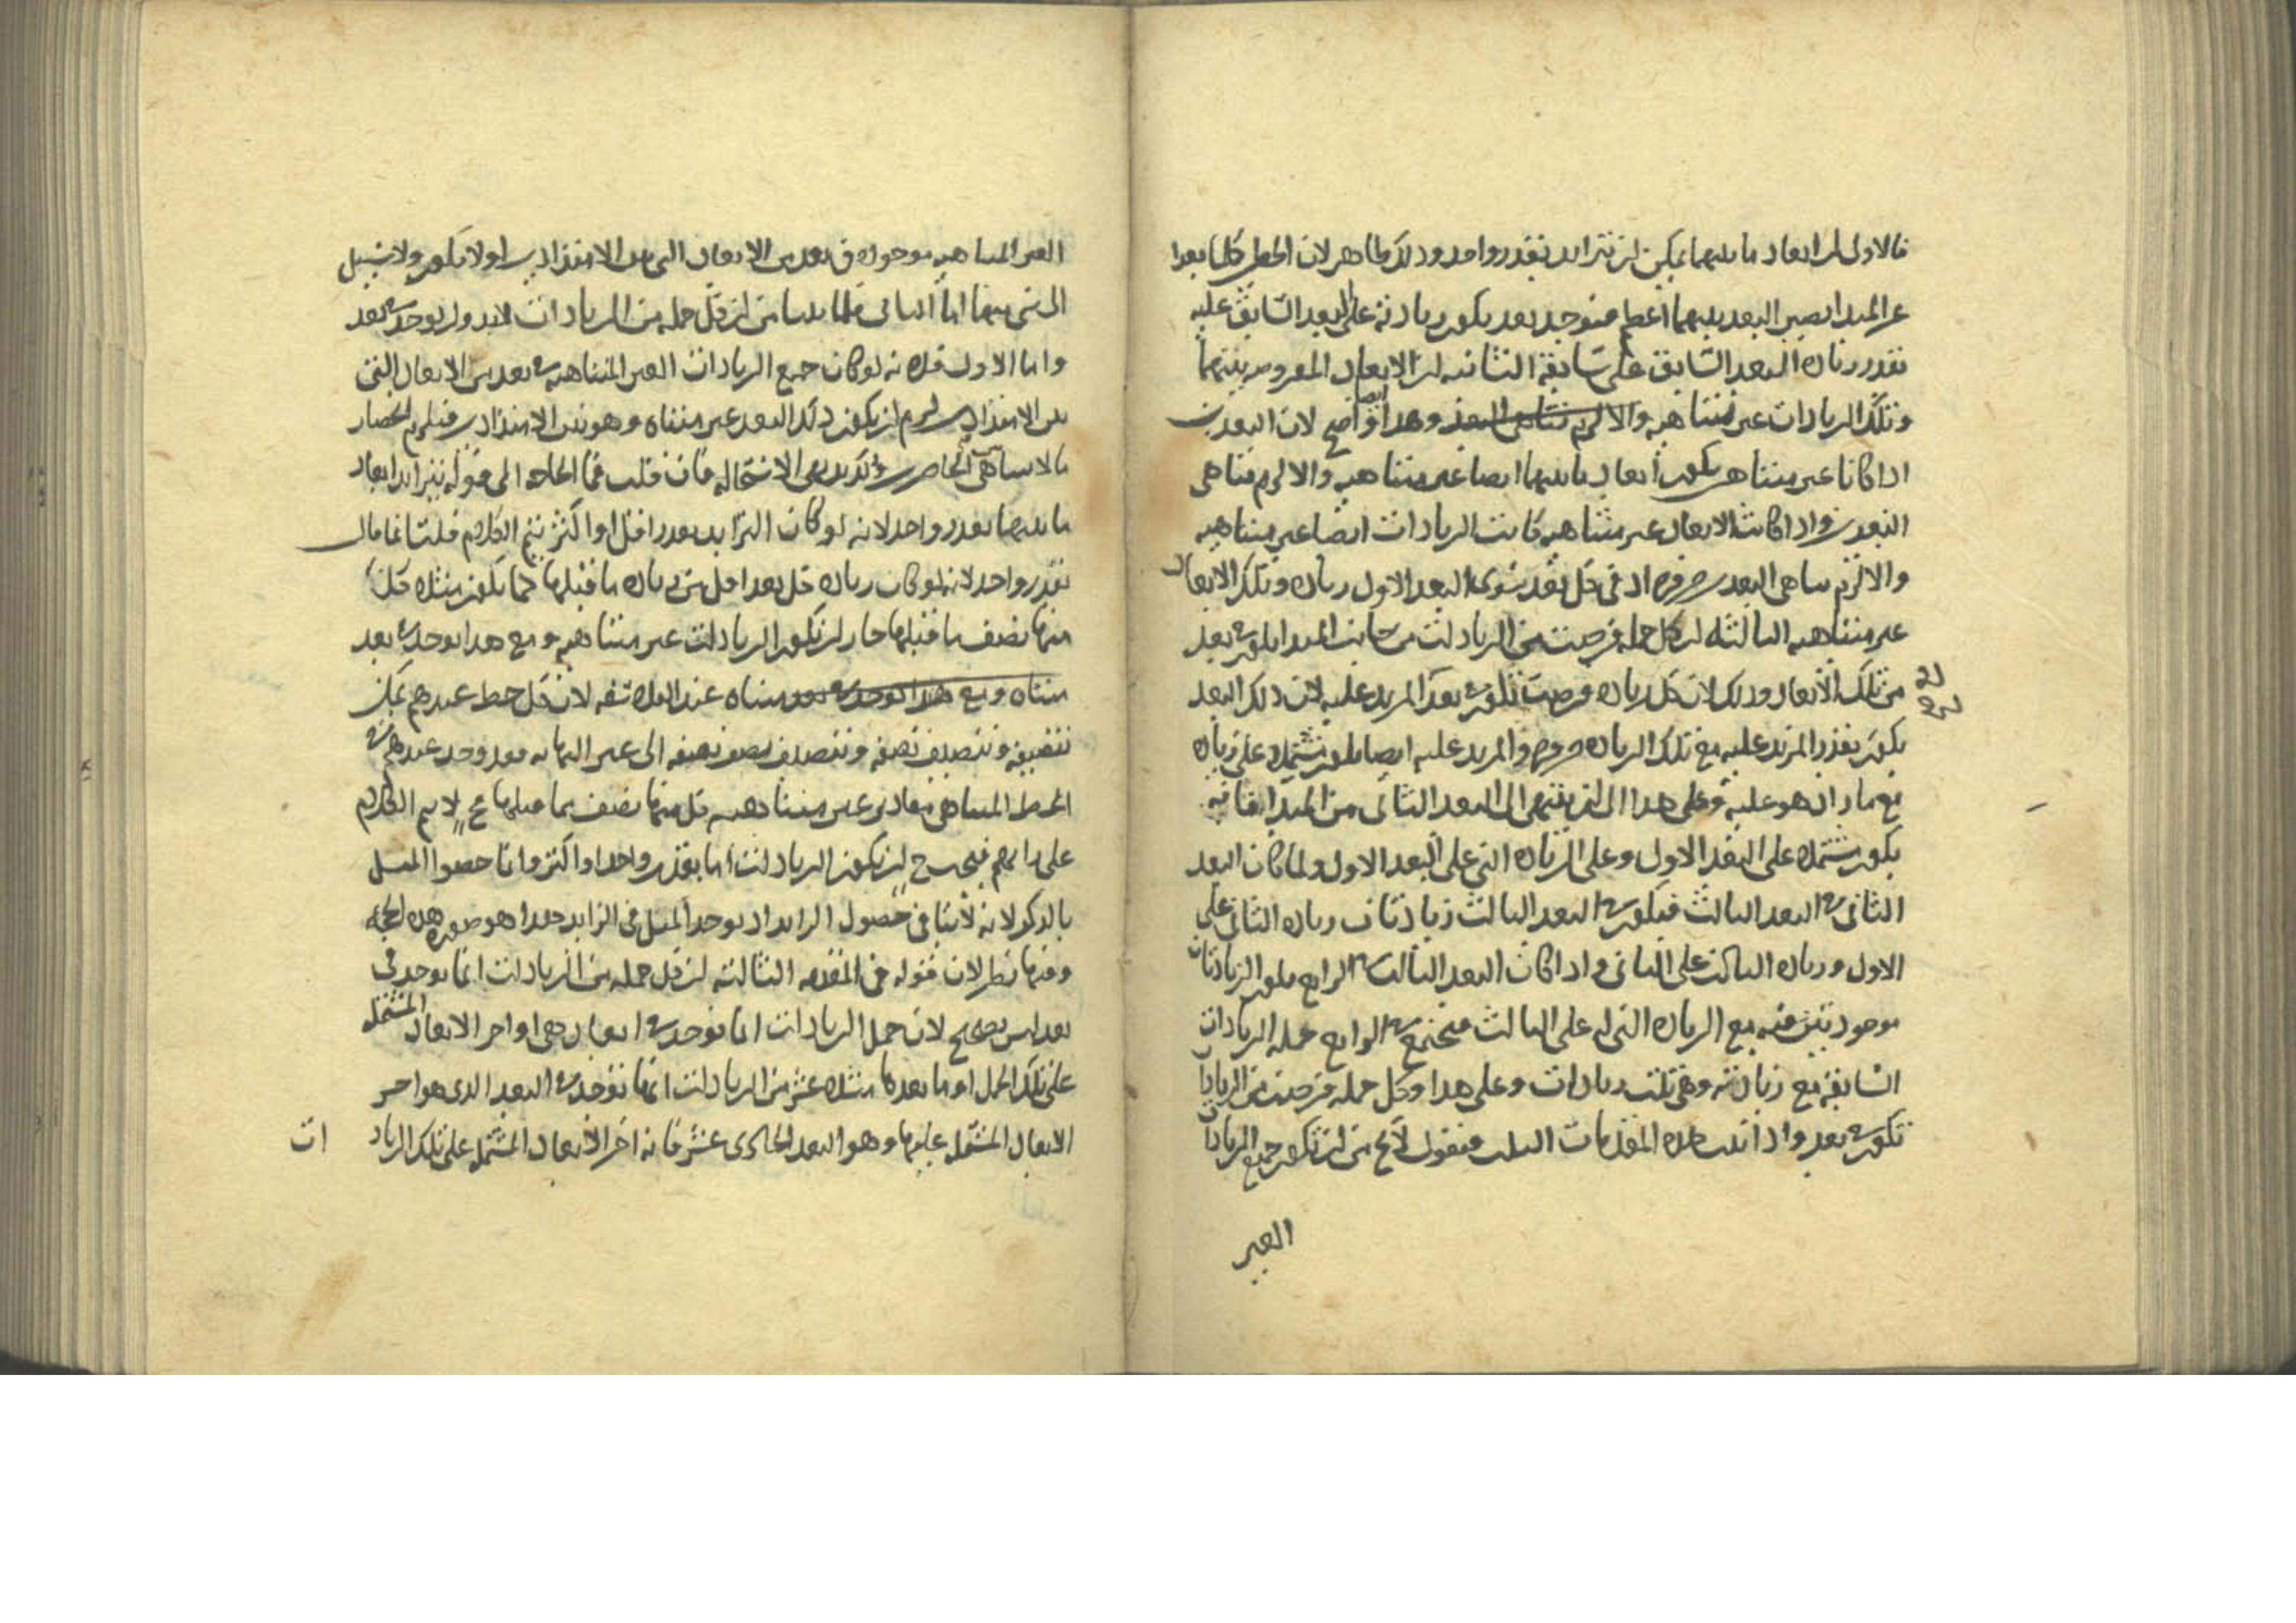 فالاول ان ابعاد ما بينهما يمكن ان تتزايد بقدر واحد وذلك ظاهر لان الخطين كلما بعدا
عن المبدا يصير البعد بينهما اعظم فيوجد بعد يكون زيادته على البعد السابق عليه
بقدر زيادة البعد السابق على سابقه الثانيه ان الابعاد المفروضه بينهما
وتلك الزيادات غير متناهيه والا لزم تناهى البعد وهذا واضح لان البعدين
اذا كانا غير متناهيين يكون ابعاد ما بينهما ايضا غير متناهيه والا لزم تناهى
البعدين واذا كانت الابعاد غير متناهيه كانت الزيادات ايضا غير متناهيه
والا لزم تناهى البعدين ضرورة ان فى كل بعد سوى البعد الاول زيادة وتلك الابعاد
غير متناهيه الثالثه ان كل جمله فرضت من الزيادات من جانب المبدا يكون فى بعد
من تلك الابعاد وذلك لان كل زيادة فرضت تكون فى بعد المزيد عليه لان ذلك البعد
يكون بقدر المزيد عليه مع تلك الزيادة ضرورة والمزيد عليه ايضا يكون مشتملا على زيادة
مع ما زاد هو عليه وعلى هذا الى ان ينتهى الى البعد الثانى من المبدا فانه
يكون مشتملا على البعد الاول وعلى الزيادة التى على البعد الاول ولما كان البعد
الثانى فى البعد الثالث فيكون فى البعد الثالث زيادتان زيادة الثانى على
الاول وزيادة الثالث على الثانى واذا كان البعد الثالث فى الرابع يكون الزيادتان
موجودتين فيه مع الزيادة التى له على الثالث فيجتمع فى الرابع جمله الزيادات
السابقه مع زيادته وهى ثلث زيادات وعلى هذا وكل جمله فرضت من الزيادات
تكون فى بعد واذا ثبت هذه المقدمات الثلث فنقول لا يخ من ان تكون جميع الزيادات
الغير
الغير المتناهيه موجوده فى بعد من الابعاد التى بين الامتدادين او لا يكون ولا سبيل
الى شى منهما اما الثانى فلما بينا من ان كل جمله من الزيادات لابد وان يوجد فى بعد
واما الاول فلانه لو كان جميع الزيادات الغير المتناهيه فى بعد من الابعاد التى
بين الامتدادين لزم ان يكون ذلك البعد غير متناه وهو بين الامتدادين فيلزم انحصار
ما لا يتناهى بين الحاصرين وذلك بديهى الاستحاله فان قلت فما الحاجه الى قوله تتزايد ابعاد
ما بينهما بقدر واحد لانه لو كان التزايد بقدر اقل او اكثر يتم الكلام قلت انما قال
بقدر واحد لانه لو كان زيادة كل بعد اقل من زيادة ما قبلها كما يكون مثلا كل
منها نصف ما قبلها جاز ان يكون الزيادات غير متناهيه ومع هذا يوجد فى بعد
متناه ومع هذا يوجد فى بعد متناه عند الفلاسفه لان كل خط عندهم يمكن
تنصيفه وتنصيف نصفه وتنصيف نصف نصفه الى غير النهايه فقد وجد عندهم فى
الخط المتناهى مقادير غير متناهيه كل منها نصف ما قبلها فح لا يتم الكلام
على رايهم فيجب ح ان يكون الزيادات اما بقدر واحد او اكثر وانما خصوا المثل
بالذكر لانه لا ينافى حصول الزايد اذ يوجد المثل فى الزايد هذا هو صورة هذه الحجه
وفيها نظر لان قوله فى المقدمه الثالثه ان كل جمله من الزيادات انما يوجد فى
بعد ليس بصحيح لان جمل الزيادات انما توجد فى ابعاد هى اواخر الابعاد المشتمله
على تلك الجمل او ما بعدها مثلا عشر من الزيادات انما توجد فى البعد الذى هو اخر
الابعاد المشتمله عليها وهو البعد الحادى عشر فانه اخر الابعاد المشتمله على تلك الزيادات